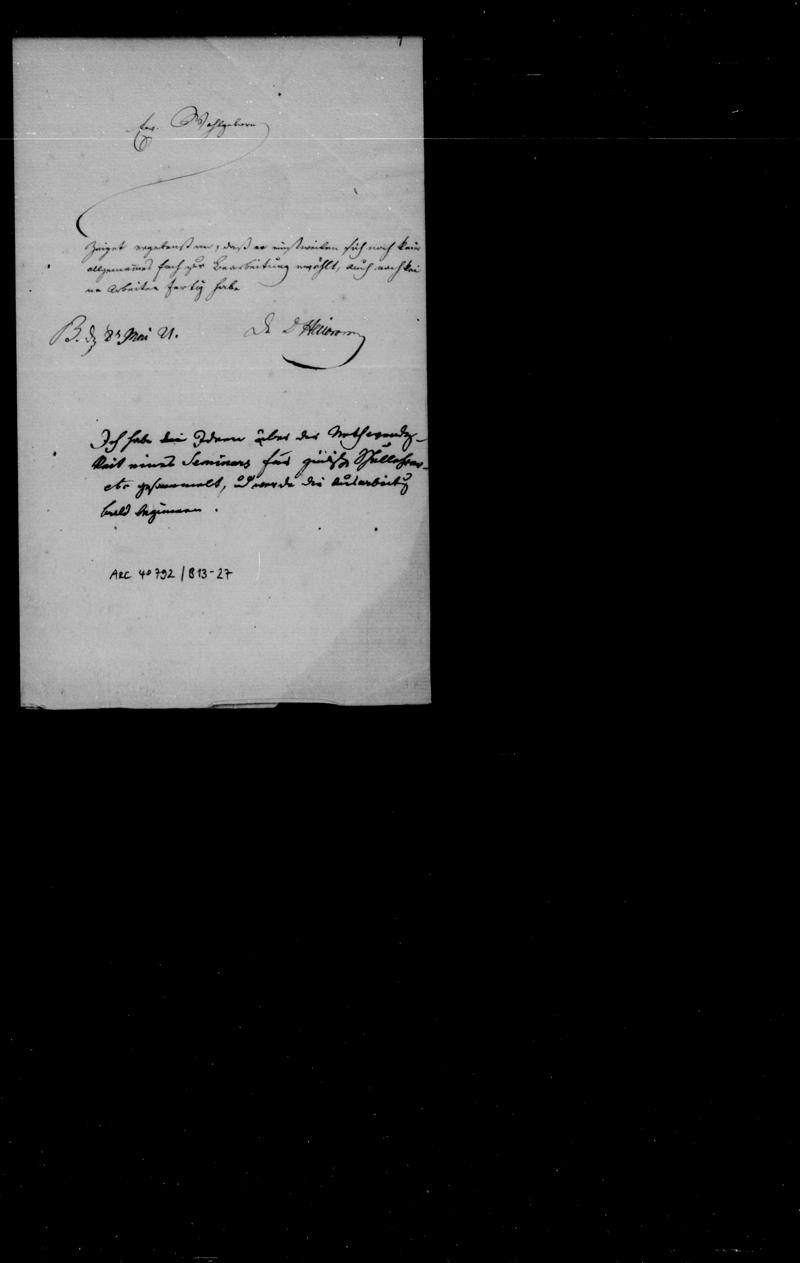 1
Ew. Wohlgeboren
Zeiget ergebenst an, daß er einstweilen sich noch kein
allgemeines Fach zur Bearbeitung erwählt, auch noch kei
ne Arbeiten fertig habe
B. d. 8t Mai 21. D
Ich habe die Ideen über die Nothwendig-
keit eines Seminars für jüdische Schullehrer
etc gesammelt, und werde die Ausarbeitung
bald beginnen.
ARC 4° 792 / B13-27